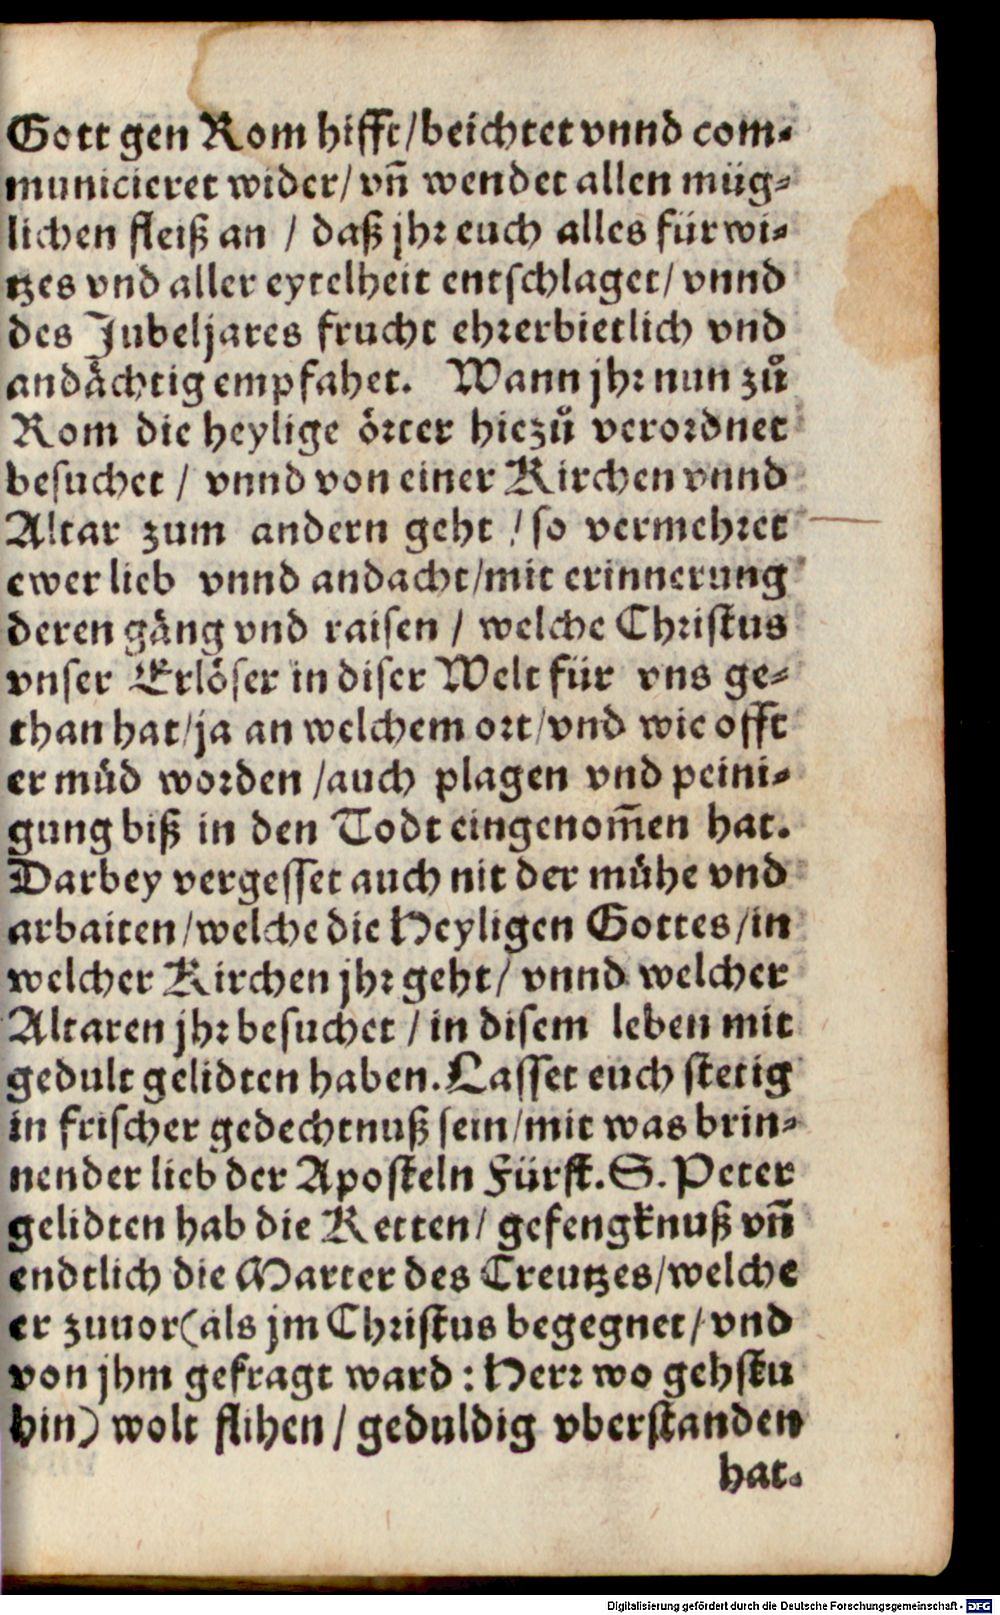 Gott gen Rom hifft/beichtet vnnd com-
municieret wider/ vñ wendet allen müg-
lichen fleiß an / daß jhr euch alles fürwi-
tzes vnd aller eytelheit entschlaget/ vnnd
des Jubeljares frucht ehrerbietlich vnd
andächtig empfahet. Wann jhr nun zů
Rom die heylige örter hiezů verordnet
besuchet / vnnd von einer Kirchen vnnd
Altar zum andern geht / so vermehret
ewer lieb vnnd andacht/mit erinnerung
deren gäng vnd raisen / welche Christus
vnser Erlöser in diser Welt für vns ge-
than hat/ja an welchem ort/vnd wie offt
er müd worden /auch plagen vnd peini-
gung biß in den Todt eingenom̃en hat.
Darbey vergesset auch nit der mühe vnd
arbaiten/welche die Heyligen Gottes/in
welcher Kirchen jhr geht/ vnnd welcher
Altaren jhr besuchet / in disem leben mit
gedult gelidten haben. Lasset euch stetig
in frischer gedechtnuß sein/mit was brin-
nender lieb der Aposteln Fürst. S. Peter
gelidten hab die Ketten/ gefengknuß vñ
endtlich die Marter des Creutzes/welche
er zuuor(als jm Christus begegnet/vnd
von jhm gefragt ward : Herr wo gehstu
hin) wolt flihen / geduldig vberstanden
hat.
Digitalisierung gefördert durch die Deutsche Forschungsgemeinschaft - DFG